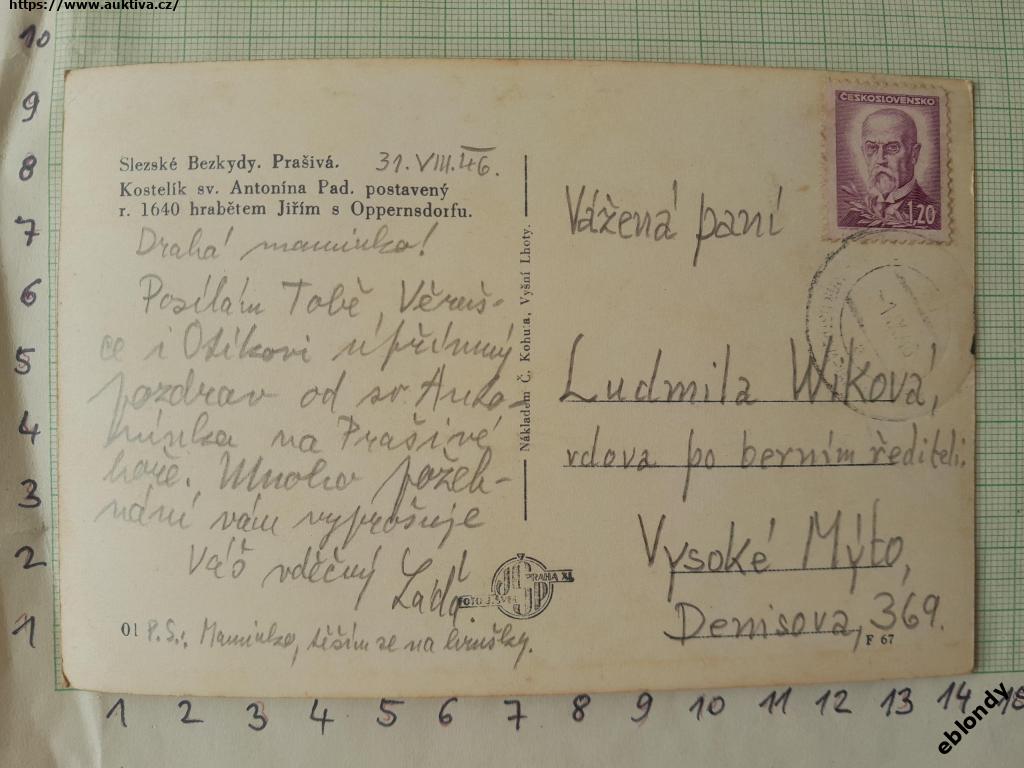 https://www.auktiva.cz/
10
9
8
7
6
5
4
3
2
1
Slezské Bezkydy. Prašivá.
31.VIII.46.
Kostelík sv. Antonína Pad. postavený
r. 1640 hrabětem Jiřím s Oppernsdorfu.
Drahá maminko!
Posílám Tobě, Věruš-
ce i Otíkovi upřímný
pozdrav od sv. Anto-
nínka na Prašivé
hoře. Mnoho požeh-
nání vám vyprošuje
Váš vděčný Láďa
01 P.S.: Maminko, těším se na hrušky.
Nákladem Č. Kohuta, Vyšní Lhoty.
FOTO J. PRAHA XI.
ČESKOSLOVENSKO
1.20
Vážená paní
Ludmila Wiková,
vdova po berním řediteli.
Vysoké Mýto,
Denisova, 369.
F 67
1 2 3 4 5 6 7 8 9 10 11 12 13 14 15
eblondy